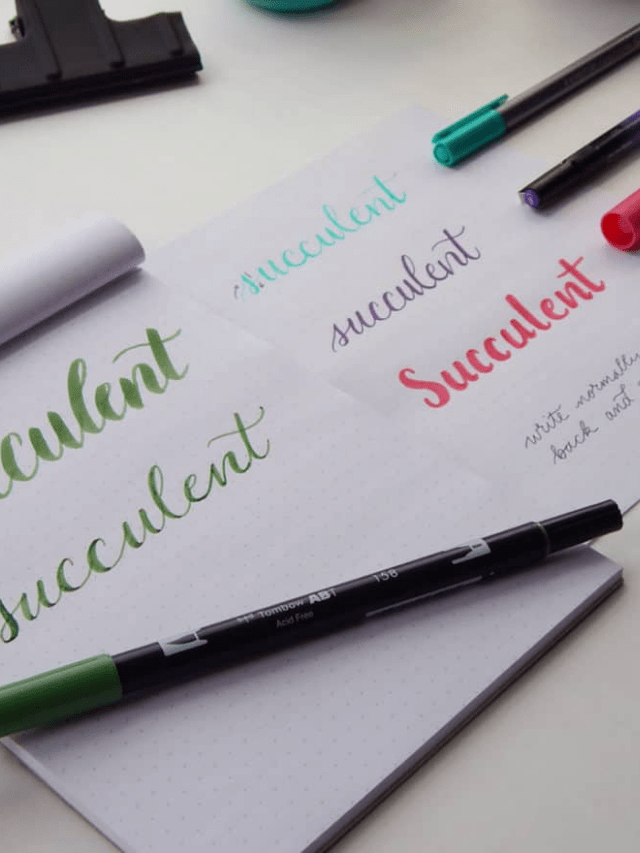 succulent
succulent
Succulent
write normally
back and
succulent
Tombow ABT 158
Acid Free